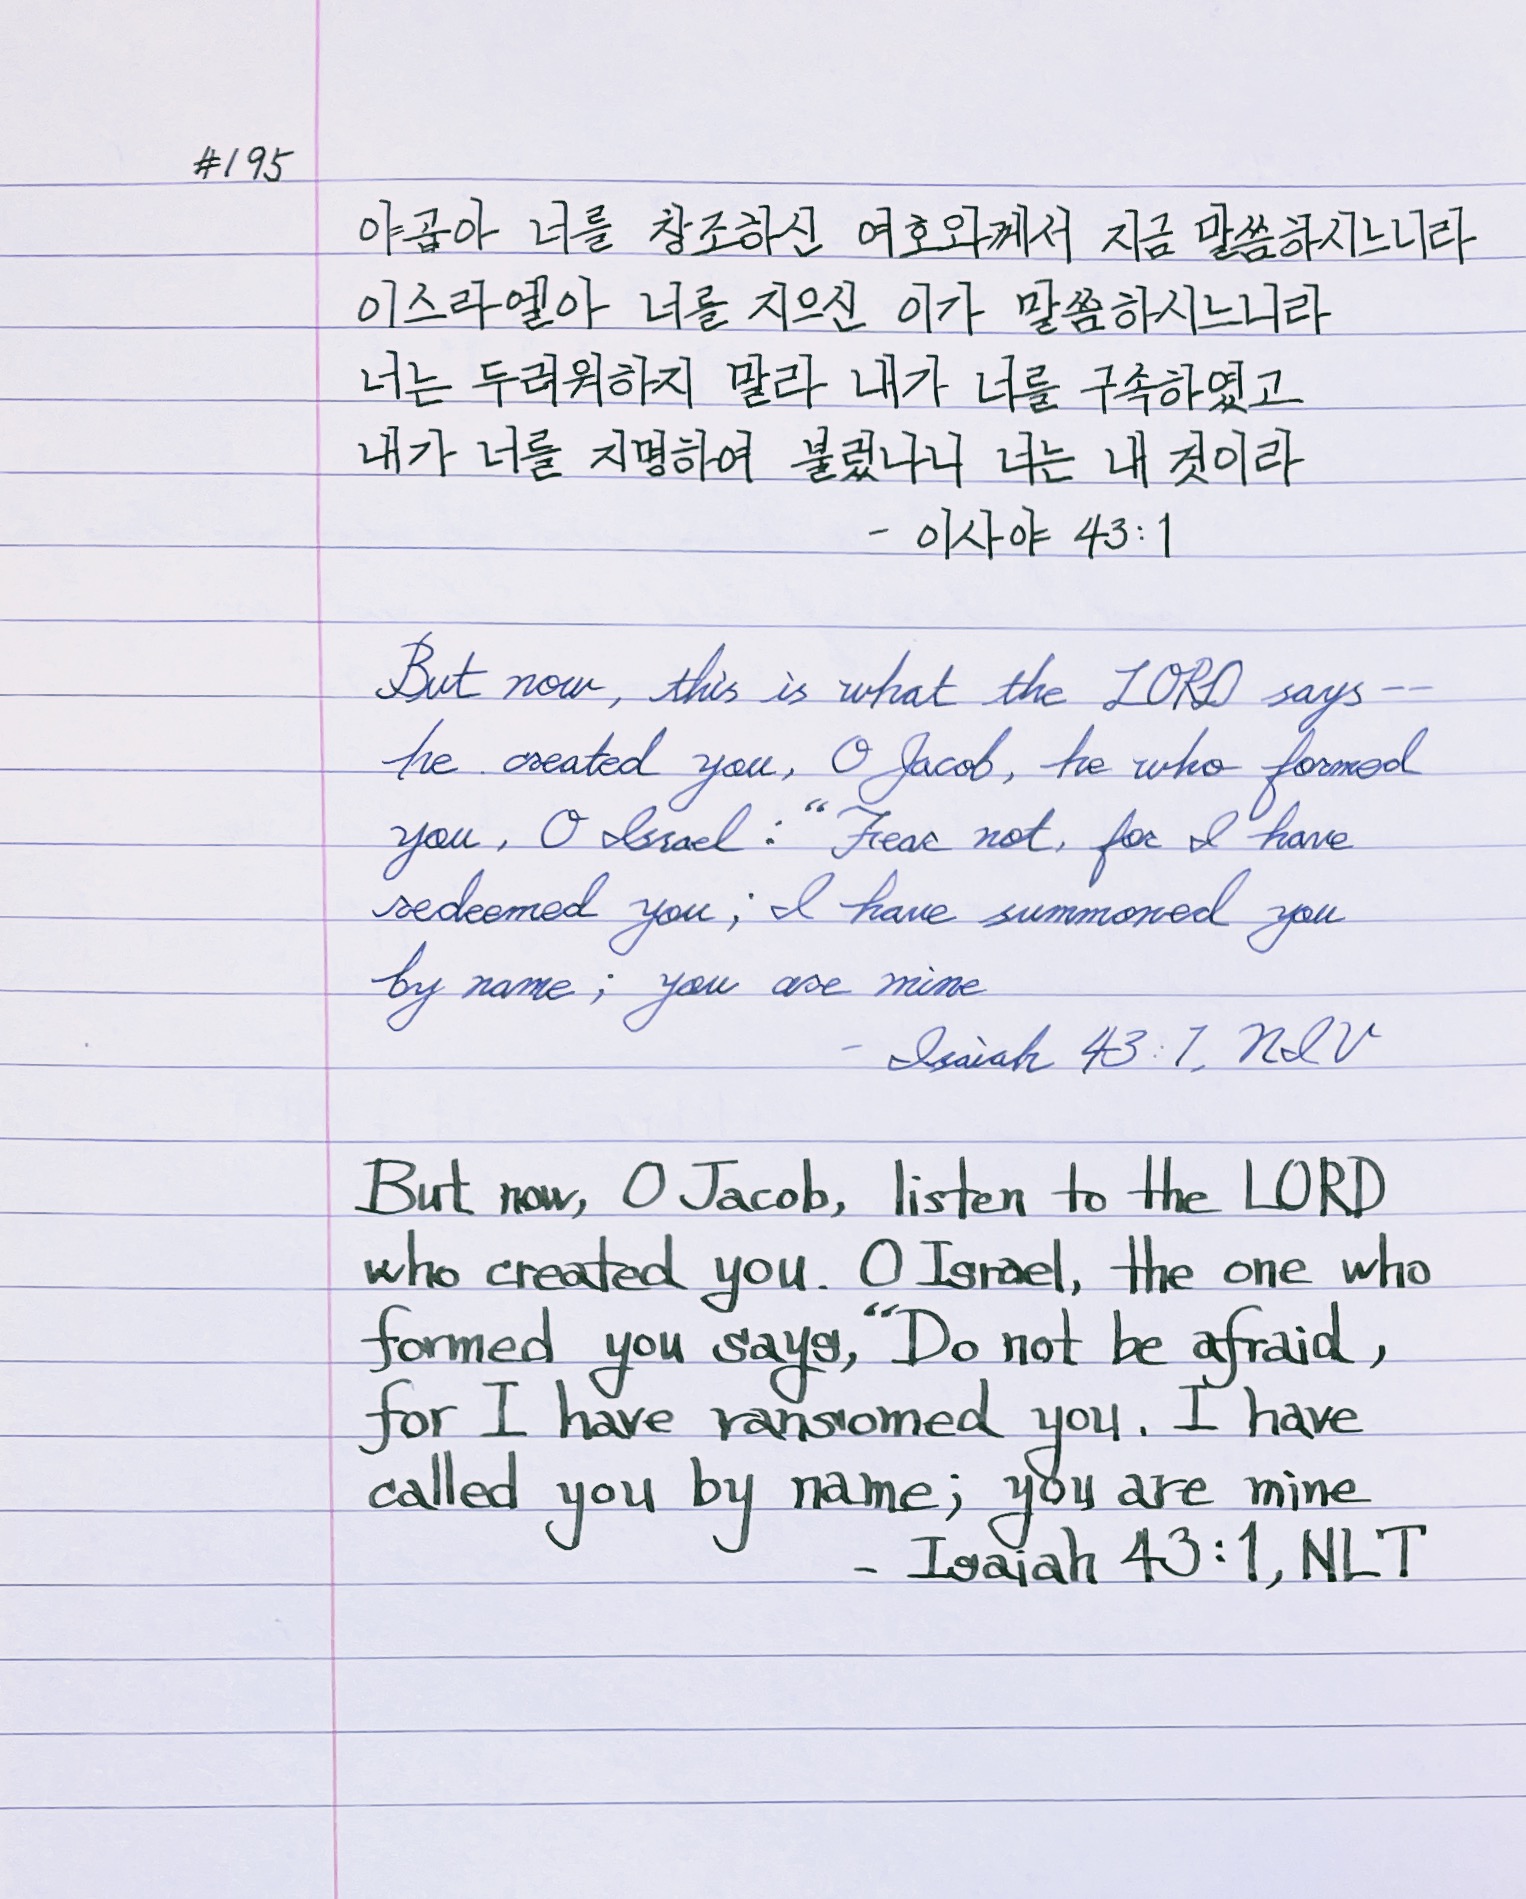 #195
야곱아 너를 창조하신 여호와께서 지금 말씀하시느니라
이스라엘아 너를 지으신 이가 말씀하시느니라
너는 두려워하지 말라 내가 너를 구속하였고
내가 너를 지명하여 불렀나니 너는 내 것이라
- 이사야 43:1
But now, this is what the LORD says --
he created you, O Jacob, he who formed
you, O Israel: "Fear not, for I have
redeemed you; I have summoned you
by name; you are mine
- Isaiah 43:1, NIV
But now, O Jacob, listen to the LORD
who created you. O Israel, the one who
formed you says, "Do not be afraid,
for I have ransomed you. I have
called you by name; you are mine
- Isaiah 43:1, NLT